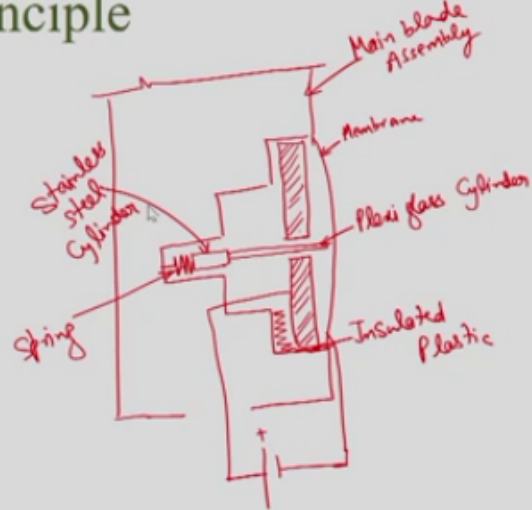 nciple
Main blade
Assembly
Membrane
Stainless
steel
Cylinder
Plexi glass Cylinder
Spring
Insulated
Plastic
+